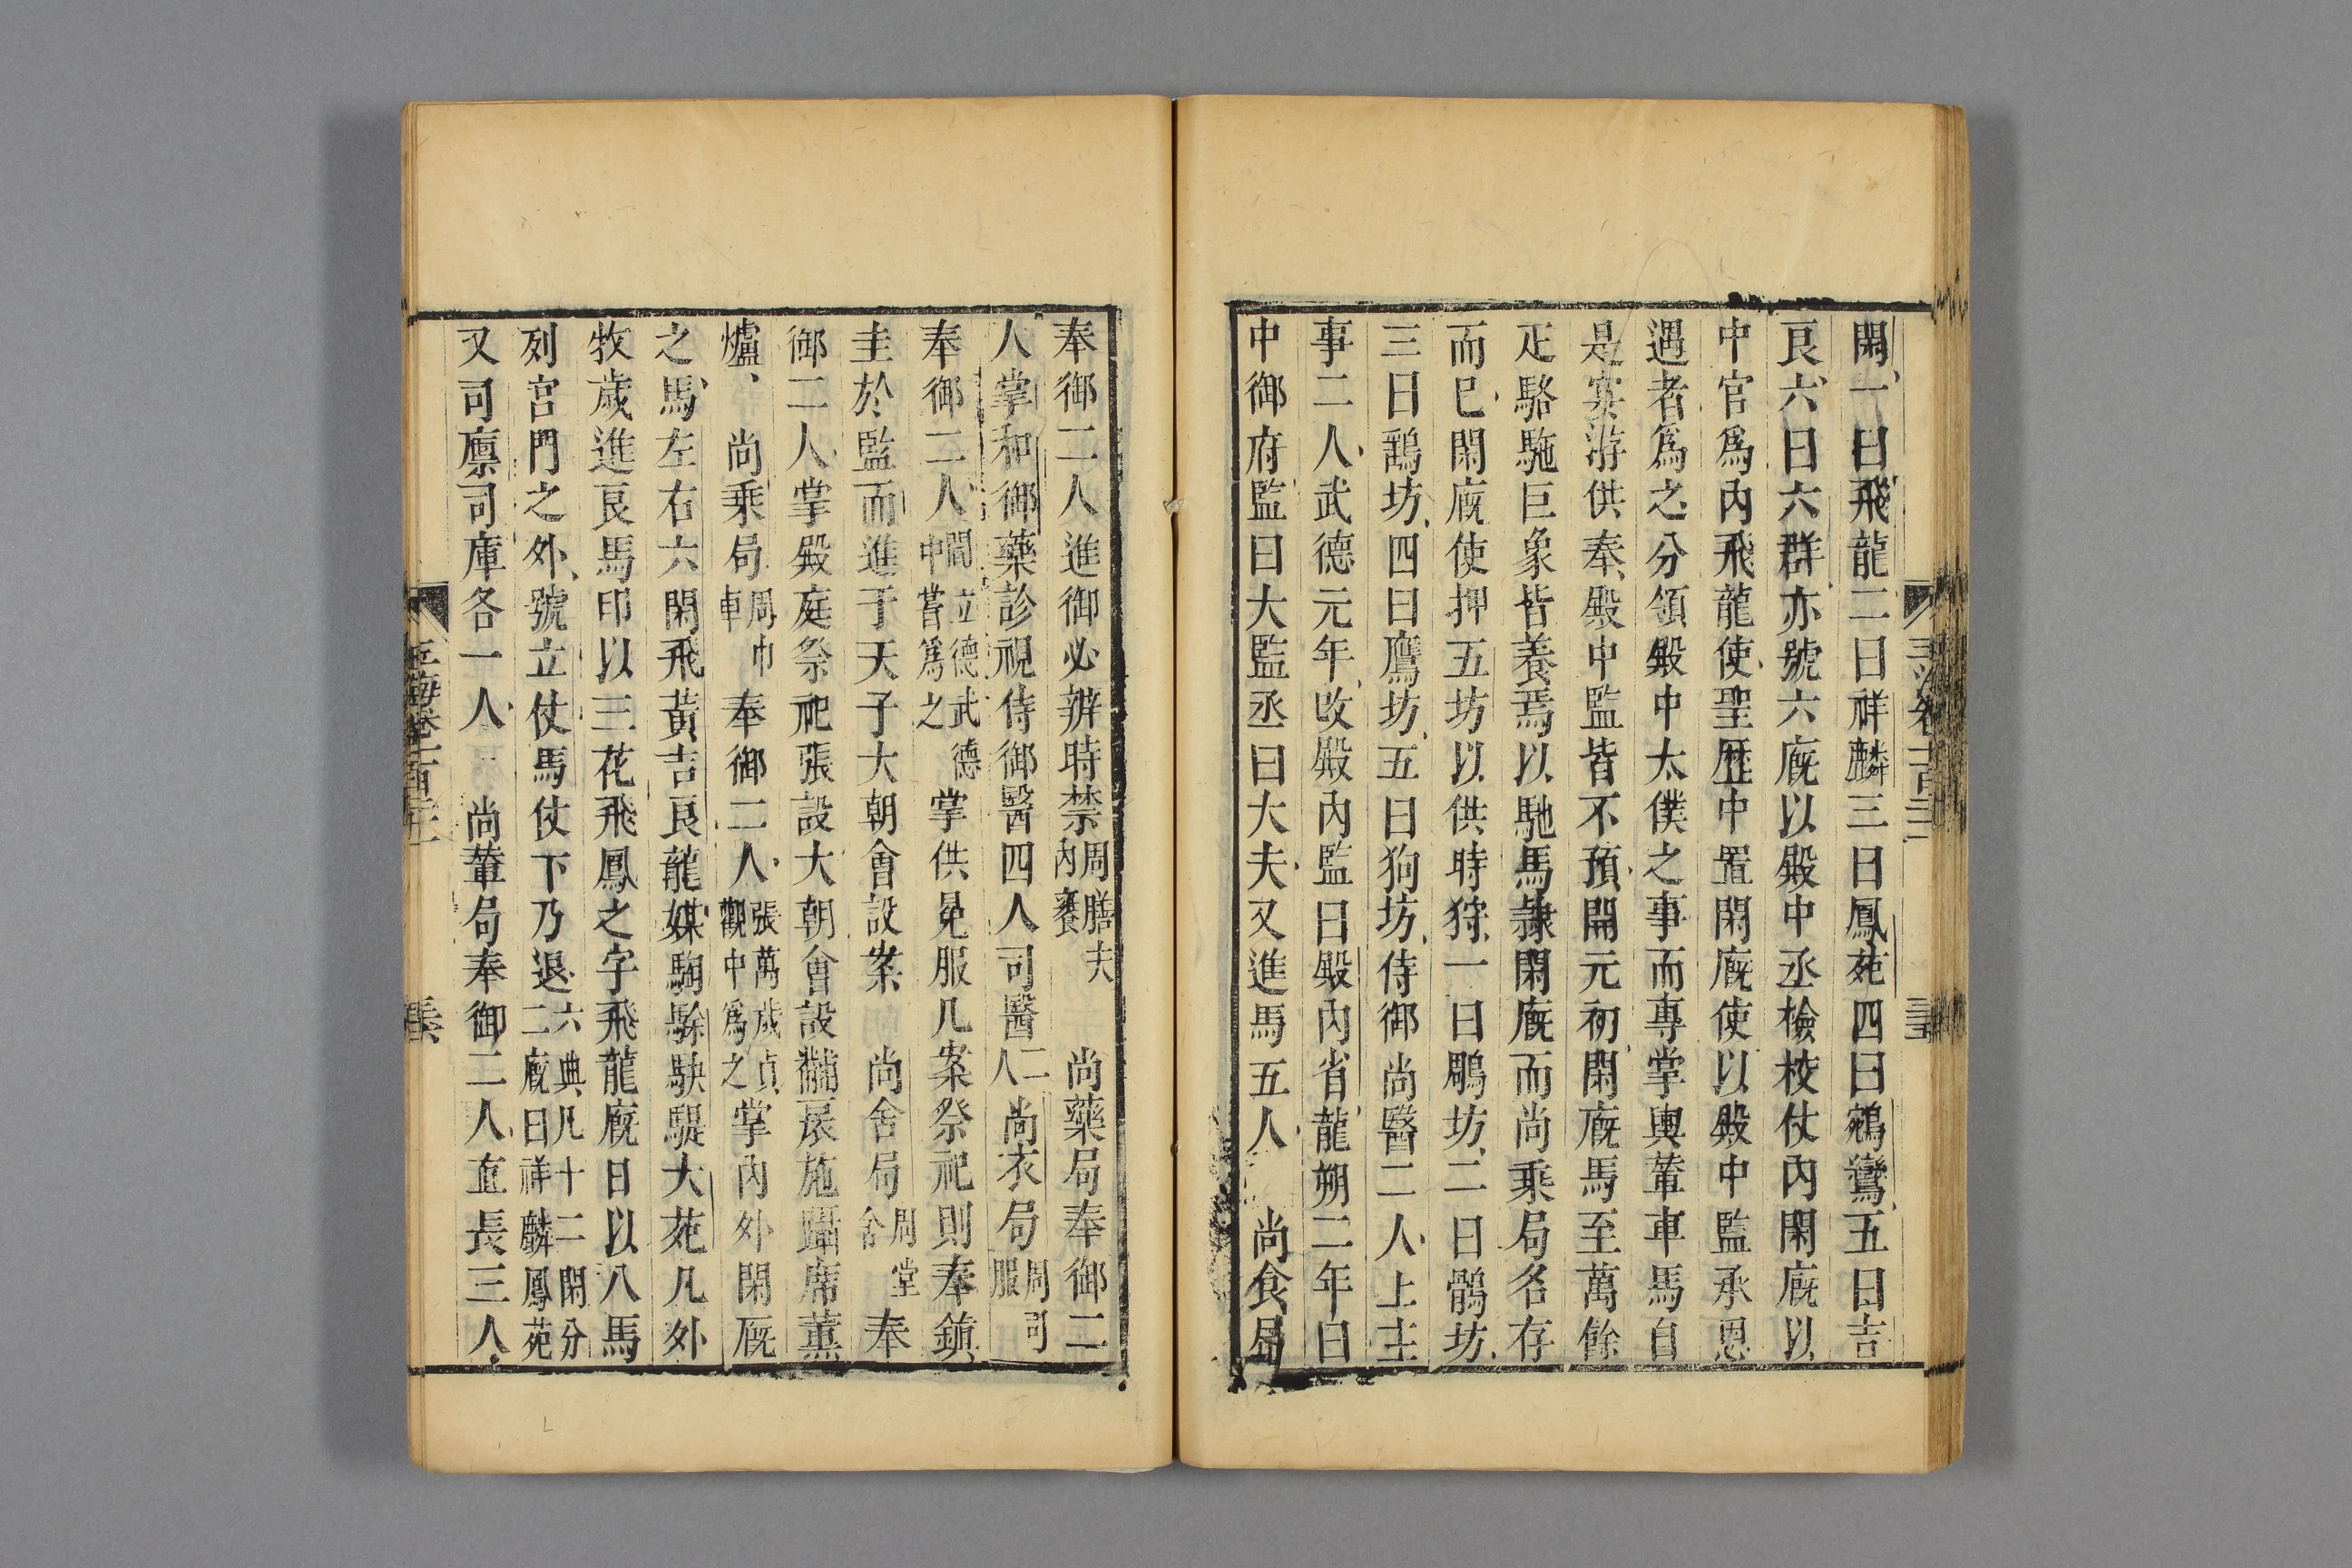 閑一曰飛龍二曰祥麟三曰鳳苑四曰鵷鸞五曰吉
良六曰六群亦號六廐以殿中丞檢校仗內閑廐以
中官爲內飛龍使聖歷中置閑廐使以殿中監承恩
遇者爲之分領殿中太僕之事而專掌輿輦車馬自
是宴游供奉殿中監皆不預開元初閑廐馬至萬餘
疋駱駞巨象皆養焉以馳馬隷閑廐而尚乘局名存
而已閑廐使押五坊以供時狩一曰鵰坊二曰鶻坊
三曰鷂坊四曰鷹坊五曰狗坊侍御尚醫二人上主
事二人武德元年改殿內監曰殿內省龍朔二年曰
中御府監曰大監丞曰大夫又進馬五人　尚食局
奉御二人進御必辨時禁周膳夫內饔　尚藥局奉御二
人掌和御藥診視侍御醫四人司醫二人尚衣局周司服
奉御二人閻立德武德中嘗爲之掌供冕服几案祭祀則奉鎮
圭於監而進于天子大朝會設案　尚舍局周堂舍奉
御二人掌殿庭祭祀張設大朝會設黼扆施躡席薰
爐　尚乘局周巾車奉御二人張萬歲貞觀中爲之掌內外閑廐
之馬左右六閑飛黃吉良龍媒騊駼駃騠大苑凡外
牧歲進良馬印以三花飛鳳之字飛龍廐日以八馬
列宮門之外號立仗馬仗下乃退六典凡十二閑分二廐曰祥麟鳳苑
又司廩司庫各一人　尚輦局奉御二人直長三人
玉海卷一百二十三